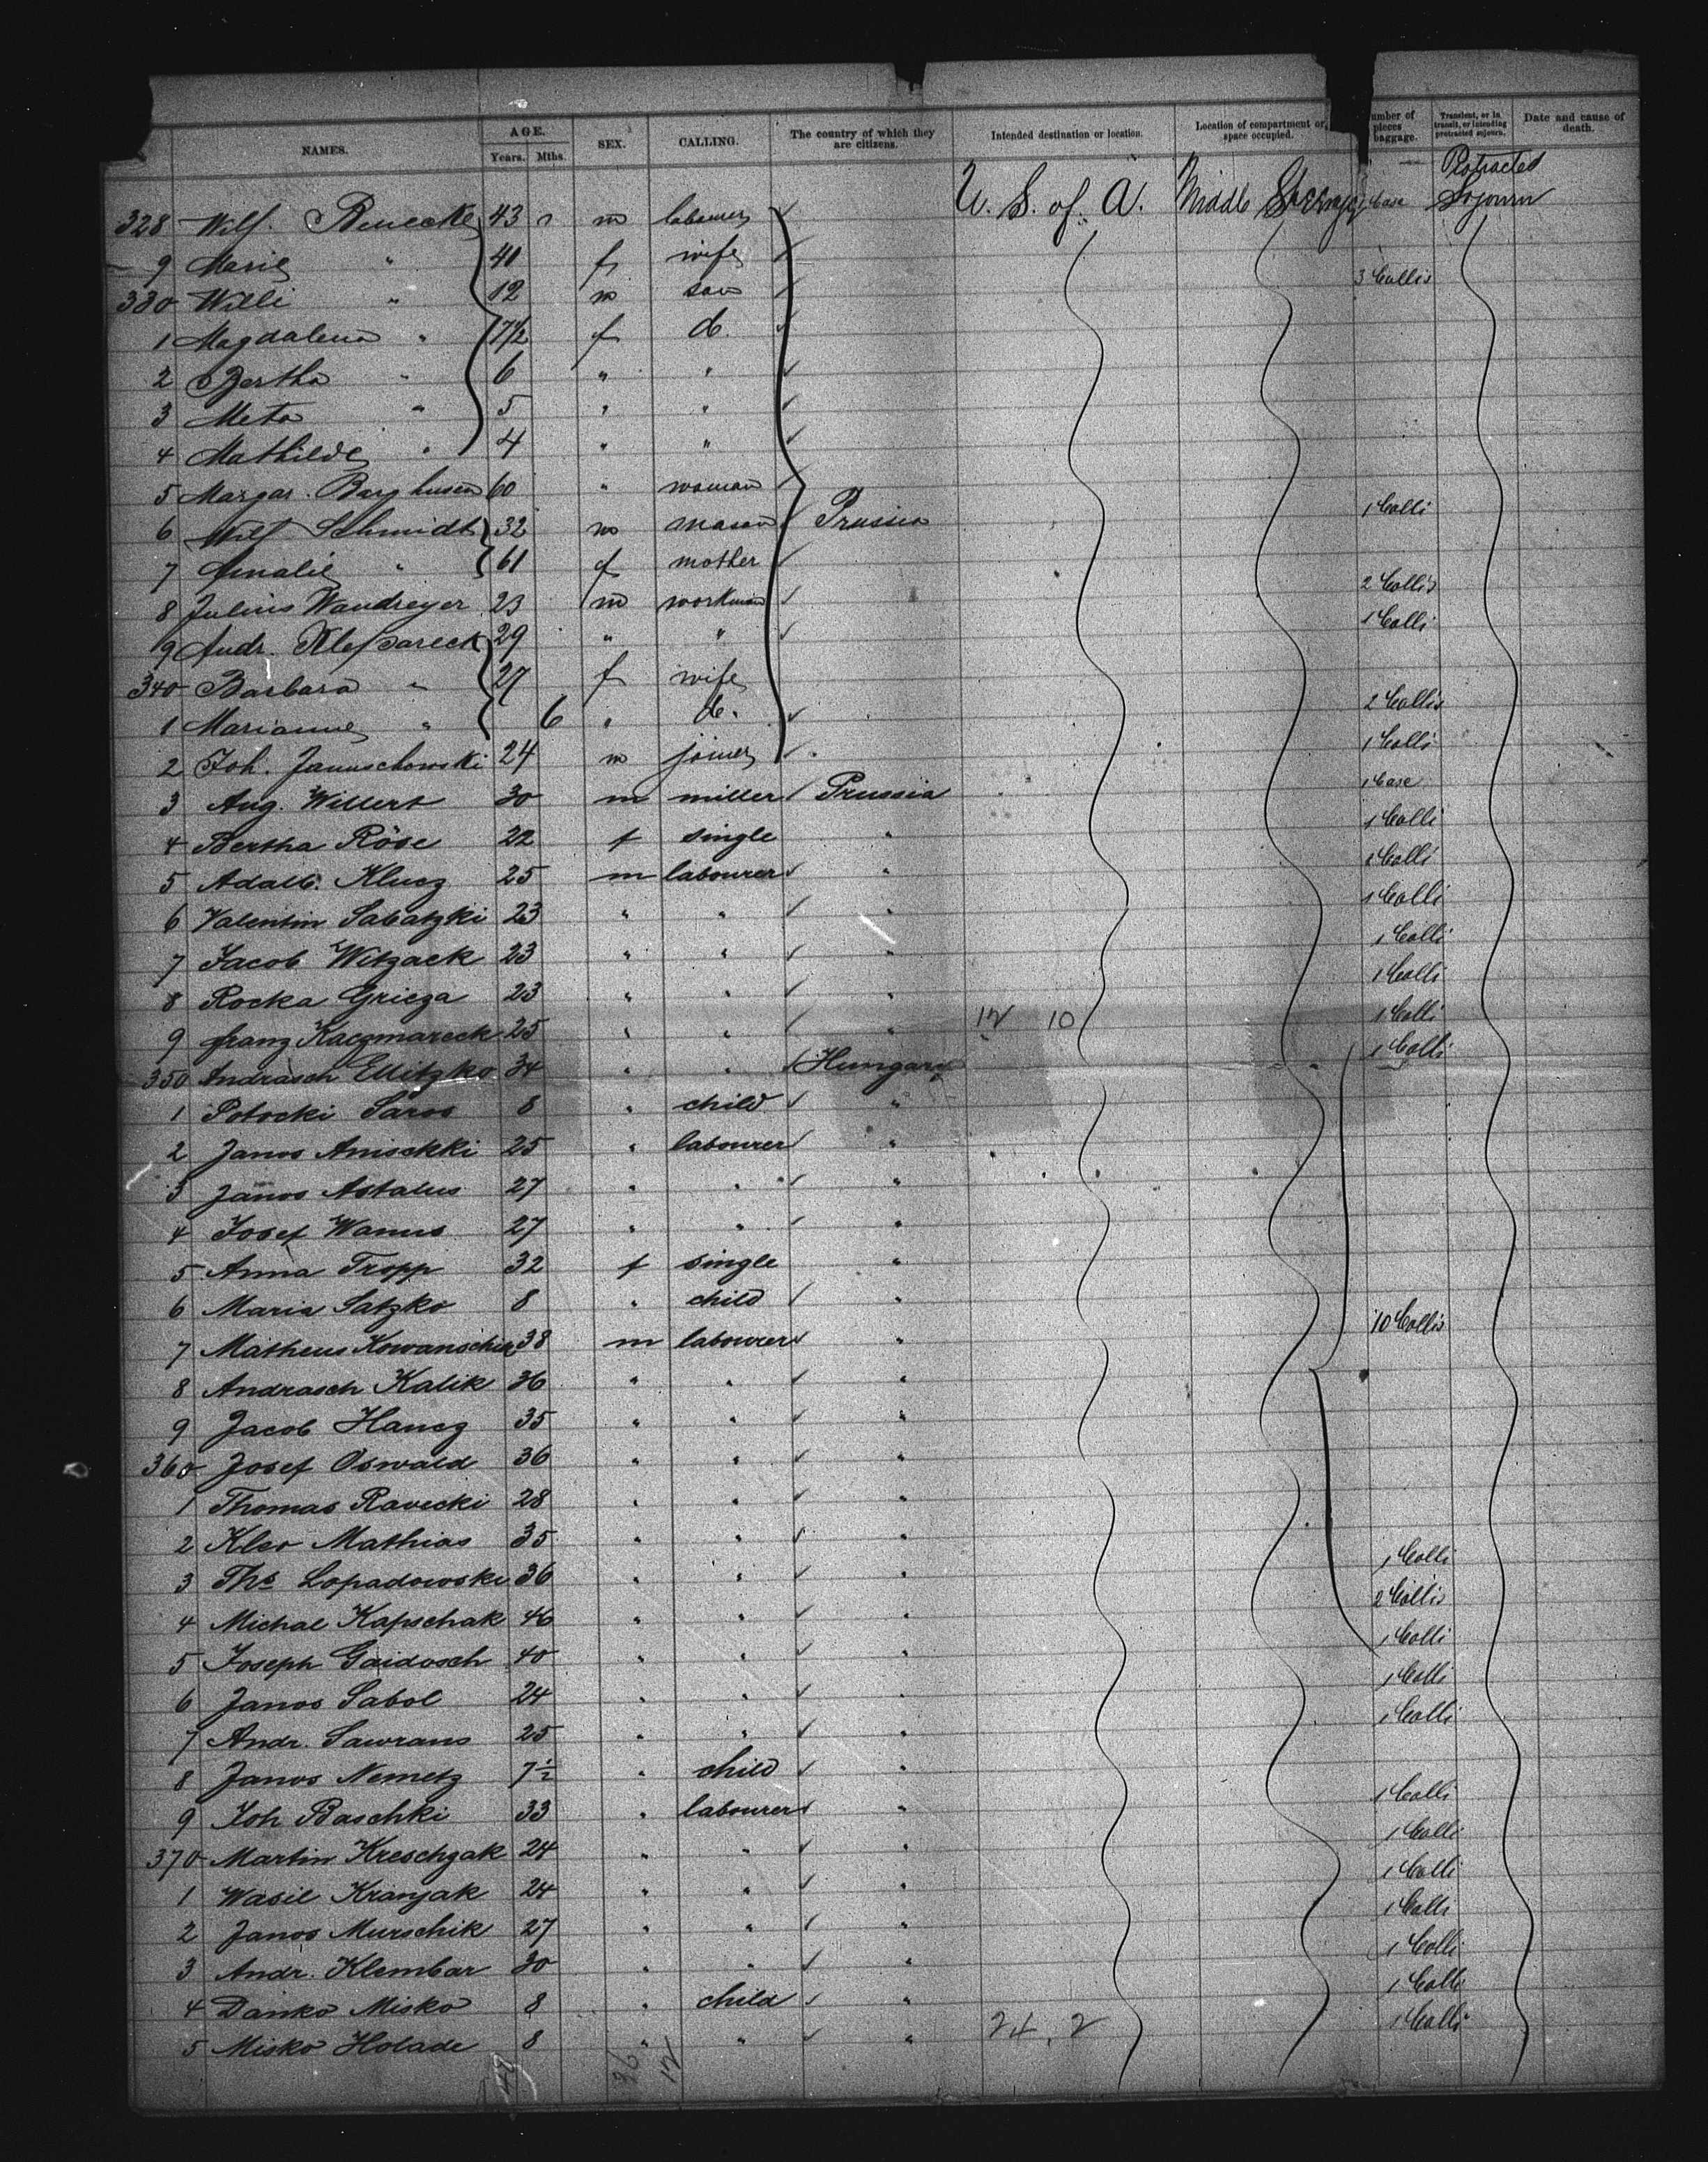 NAMES. AGE. Years. Mths. SEX. CALLING. The country of which they are citizens. Intended destination or location. Location of compartment or space occupied. umber of pieces baggage. Transient, or in transit, or intending protracted sojourn. Date and cause of death.
Protracted
328 Wilh. 43 m labourer U. S. of. A. Middle Steerage 1 Case Sojourn
9 Marie " 41 f wife
330 Willi " 12 m son 3 Collis
1 Magdalena " 7 1/2 f d.
2 Bertha " 6 " "
3 Meta " 5 " "
4 Mathilde " 4 " "
5 Margar. Barghusen 60 " woman
6 Wilh Schmidt 32 m mason Prussia 1 Colli
7 Amalie " 61 f mother
8 Julius Wandreyer 23 m workman 2 Collis
9 Andr. 29 " " 1 Colli
340 Barbara " 27 f wife
1 Marianne " 6 " d. 2 Collis
2 Joh. Januschowski 24 m joiner 1 Colli
3 Aug. Willert 30 m miller Prussia 1 Case
4 Bertha Röse 22 f single " 1 Colli
5 Adalb. Klucz 25 m labourer " 1 Colli
6 Valentin Sabatzki 23 " " " 1 Colli
7 Jacob Witzack 23 " " " 1 Colli
8 Rocka Griega 23 " " " 1 Colli
9 Franz Kaczmareck 25 " " " 12 10 1 Colli
350 Andrasch Ellitzko 34 " " Hungary 1 Colli
1 Potocki Saros 8 " child "
2 Janos Anischki 25 " labourer "
3 Janos Astalus 27 " " "
4 Josef Wanus 27 " " "
5 Anna Tropp 32 f single "
6 Maria Satzko 8 " child "
7 Matheus 38 m labourer " 10 Collis
8 Andrasch Kalik 36 " " "
9 Jacob Hancz 35 " " "
360 Josef Oswald 36 " " "
1 Thomas Ravecki 28 " " "
2 Kleo Mathias 35 " " "
3 Ths Lopadowski 36 " " " 1 Colli
4 Michal Kapschak 46 " " " 2 Collis
5 Joseph Gaidosch 40 " " " 1 Colli
6 Janos Sabol 24 " " " 1 Colli
7 Andr. Sawrans 25 " " " 1 Colli
8 Janos Nemetz 7 1/2 " child "
9 Joh Baschki 33 " labourer " 1 Colli
370 Martin Kreschzak 24 " " " 1 Colli
1 Wasil Kranjak 24 " " " 1 Colli
2 Janos Murschik 27 " " " 1 Colli
3 Andr. Klembar 30 " " " 1 Colli
4 Danko Misko 8 " child " 1 Colli
5 Misko Holade 8 " " " 24. 2 1 Colli
36 12